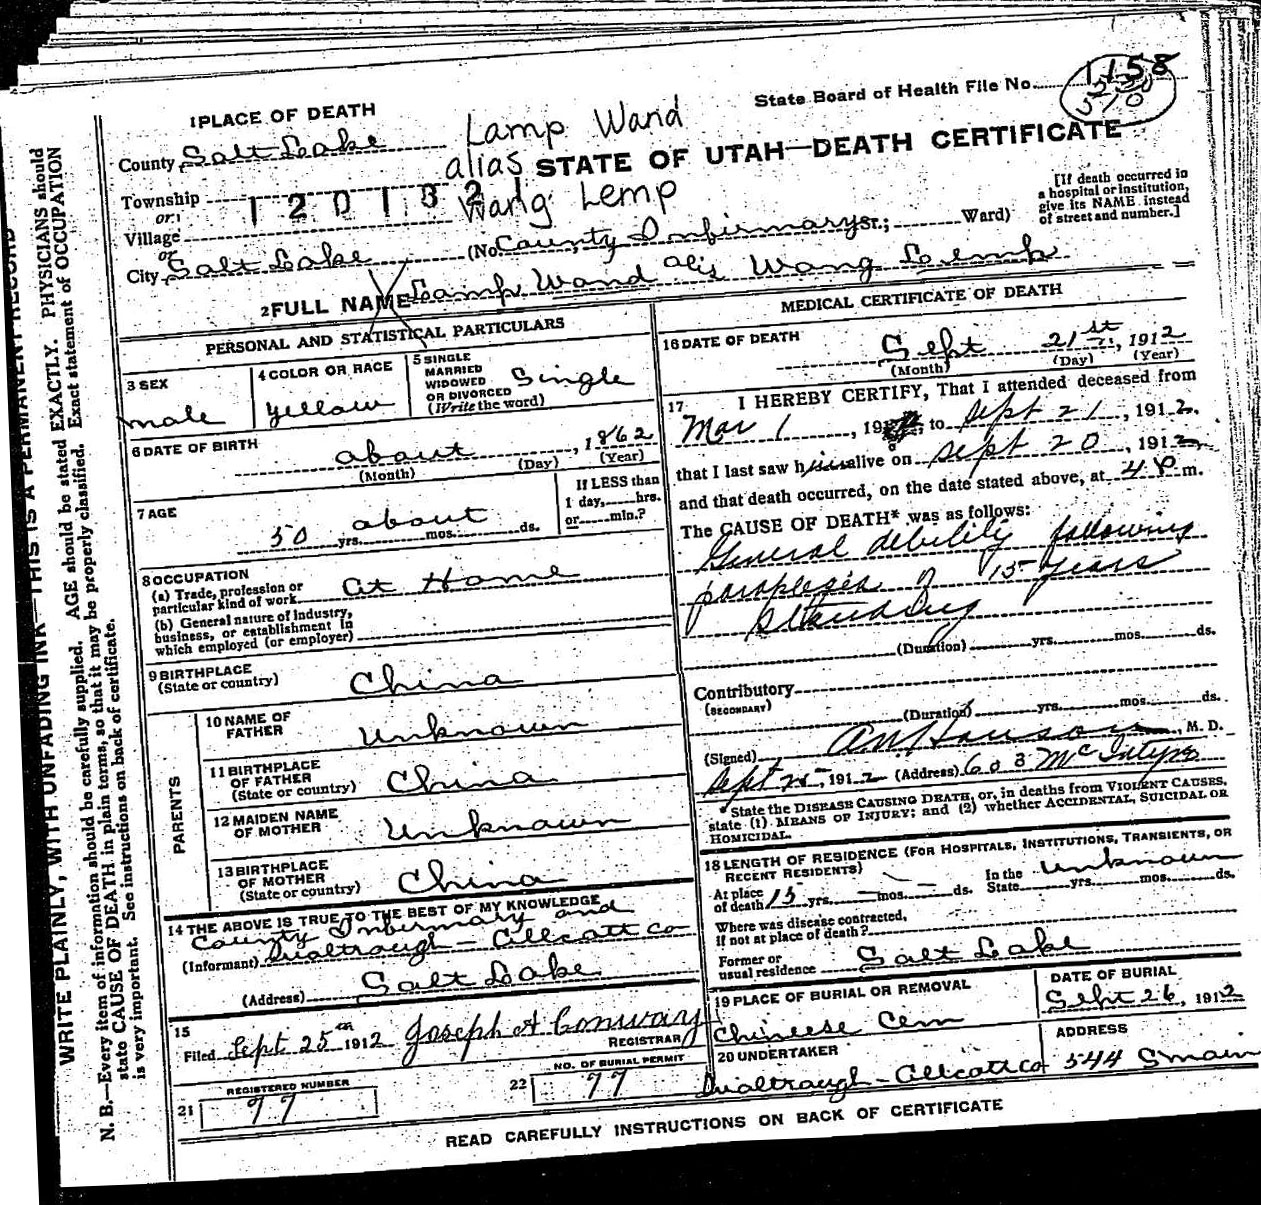 State Board of Health File No. 1158
250
510
1 PLACE OF DEATH
County Salt Lake
Lamp Wand
alias STATE OF UTAH—DEATH CERTIFICATE
Wang Lemp
Township
or
Village
1201321
[If death occurred in
a hospital or institution,
give its NAME instead
of street and number.]
or
City Salt Lake (No. County Infirmary St.; Ward)
2 FULL NAME Lamp Wand alis Wang Lemp
PERSONAL AND STATISTICAL PARTICULARS
3 SEX
male
4 COLOR OR RACE
Yellow
5 SINGLE
MARRIED
WIDOWED
OR DIVORCED
(Write the word)
Single
6 DATE OF BIRTH
about , 1862
(Month) (Day) (Year)
7 AGE
50 yrs. about mos. ds.
If LESS than
1 day, hrs.
or min.?
8 OCCUPATION
(a) Trade, profession or
particular kind of work At Home
(b) General nature of industry,
business, or establishment in
which employed (or employer)
9 BIRTHPLACE
(State or country) China
PARENTS
10 NAME OF
FATHER Unknown
11 BIRTHPLACE
OF FATHER
(State or country) China
12 MAIDEN NAME
OF MOTHER Unknown
13 BIRTHPLACE
OF MOTHER
(State or country) China
14 THE ABOVE IS TRUE TO THE BEST OF MY KNOWLEDGE
County Infirmary and
(Informant) Allcott Co
(Address) Salt Lake
15
Filed Sept 25th 1912 Joseph A Conway
REGISTRAR
REGISTERED NUMBER
21 77
NO. OF BURIAL PERMIT
22 77
MEDICAL CERTIFICATE OF DEATH
16 DATE OF DEATH
Sept 21st, 1912
(Month) (Day) (Year)
17 I HEREBY CERTIFY, That I attended deceased from
Mar 1, 19 , to Sept 21, 1912.
that I last saw him alive on Sept 20, 1912
and that death occurred, on the date stated above, at 4 P m.
The CAUSE OF DEATH* was as follows:
General debility following
paraplegia of 15 years
standing
(Duration) yrs. mos. ds.
Contributory
(SECONDARY)
(Duration) yrs. mos. ds.
(Signed) , M. D.
Sept , 1912 (Address) 603 McIntyre
*State the DISEASE CAUSING DEATH, or, in deaths from VIOLENT CAUSES,
state (1) MEANS OF INJURY; and (2) whether ACCIDENTAL, SUICIDAL OR
HOMICIDAL.
18 LENGTH OF RESIDENCE (FOR HOSPITALS, INSTITUTIONS, TRANSIENTS, OR
RECENT RESIDENTS)
At place
of death 15 yrs. mos. ds. In the
State Unknown yrs. mos. ds.
Where was disease contracted,
if not at place of death?
Former or
usual residence Salt Lake
19 PLACE OF BURIAL OR REMOVAL
Chineese Cem
DATE OF BURIAL
Sept 26, 1912
20 UNDERTAKER
Allcott Co
ADDRESS
544 S main
READ CAREFULLY INSTRUCTIONS ON BACK OF CERTIFICATE
WRITE PLAINLY, WITH UNFADING INK—THIS IS A PERMANENT RECORD
N. B.—Every item of information should be carefully supplied. AGE should be stated EXACTLY. PHYSICIANS should
state CAUSE OF DEATH in plain terms, so that it may be properly classified. Exact statement of OCCUPATION
is very important. See instructions on back of certificate.